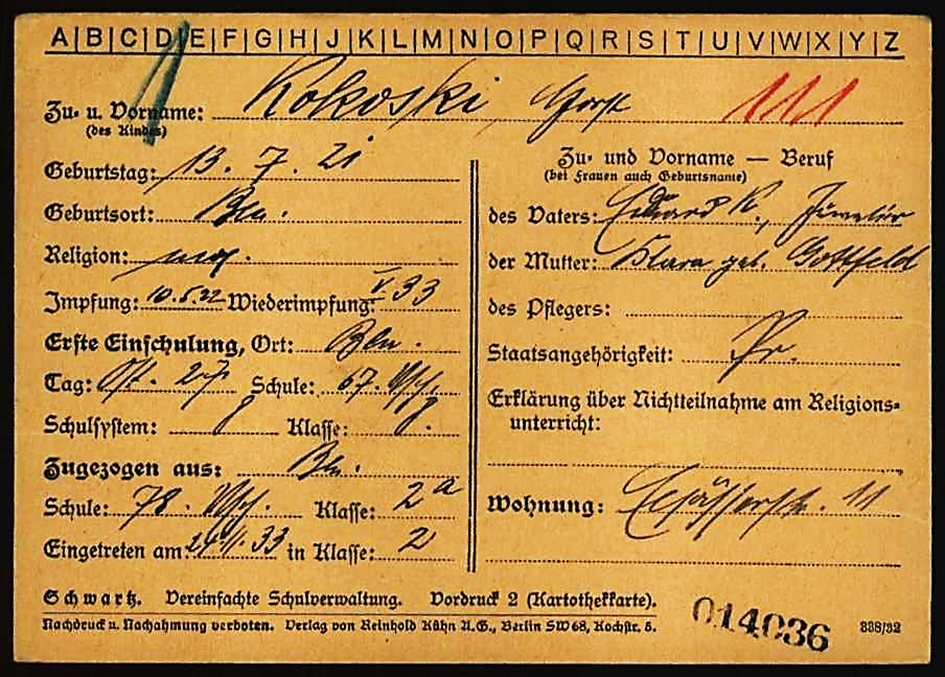 A|B|C|D|E|F|G|H|J|K|L|M|N|O|P|Q|R|S|T|U|V|W|X|Y|Z
Zu- u. Vorname: Kokoski, Horst 111
(des Kindes)
Geburtstag: 13. 7. 21
Geburtsort: Bln.
Religion: mos.
Impfung: 10.5.22 Wiederimpfung: V 33
Erste Einschulung, Ort: Bln.
Tag: Ost. 27 Schule: 67. Vsch.
Schulsystem: 8 Klasse: 8.
Zugezogen aus: Bln.
Schule: 78. Vsch. Klasse: 2a
Eingetreten am: 33 in Klasse: 2
Zu- und Vorname — Beruf
(bei Frauen auch Geburtsname)
des Vaters: Eduard K., Juwelier
der Mutter: Klara geb. Gottfeld
des Pflegers:
Staatsangehörigkeit: Pr.
Erklärung über Nichtteilnahme am Religions-
unterricht:
Wohnung: 11
Schwartz. Vereinfachte Schulverwaltung. Vordruck 2 (Kartothekkarte).
Nachdruck u. Nachahmung verboten. Verlag von Reinhold Kühn A.G., Berlin SW 68, Kochstr. 5.
014036
338/32